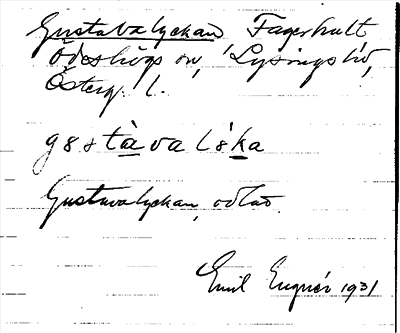 Gustavalyckan Fagerhult
Ödeshögs sn, Lysings hd,
Österg. l.
gustàvalỳka
Gustavalyckan, odlad.
Emil Engnér 1931